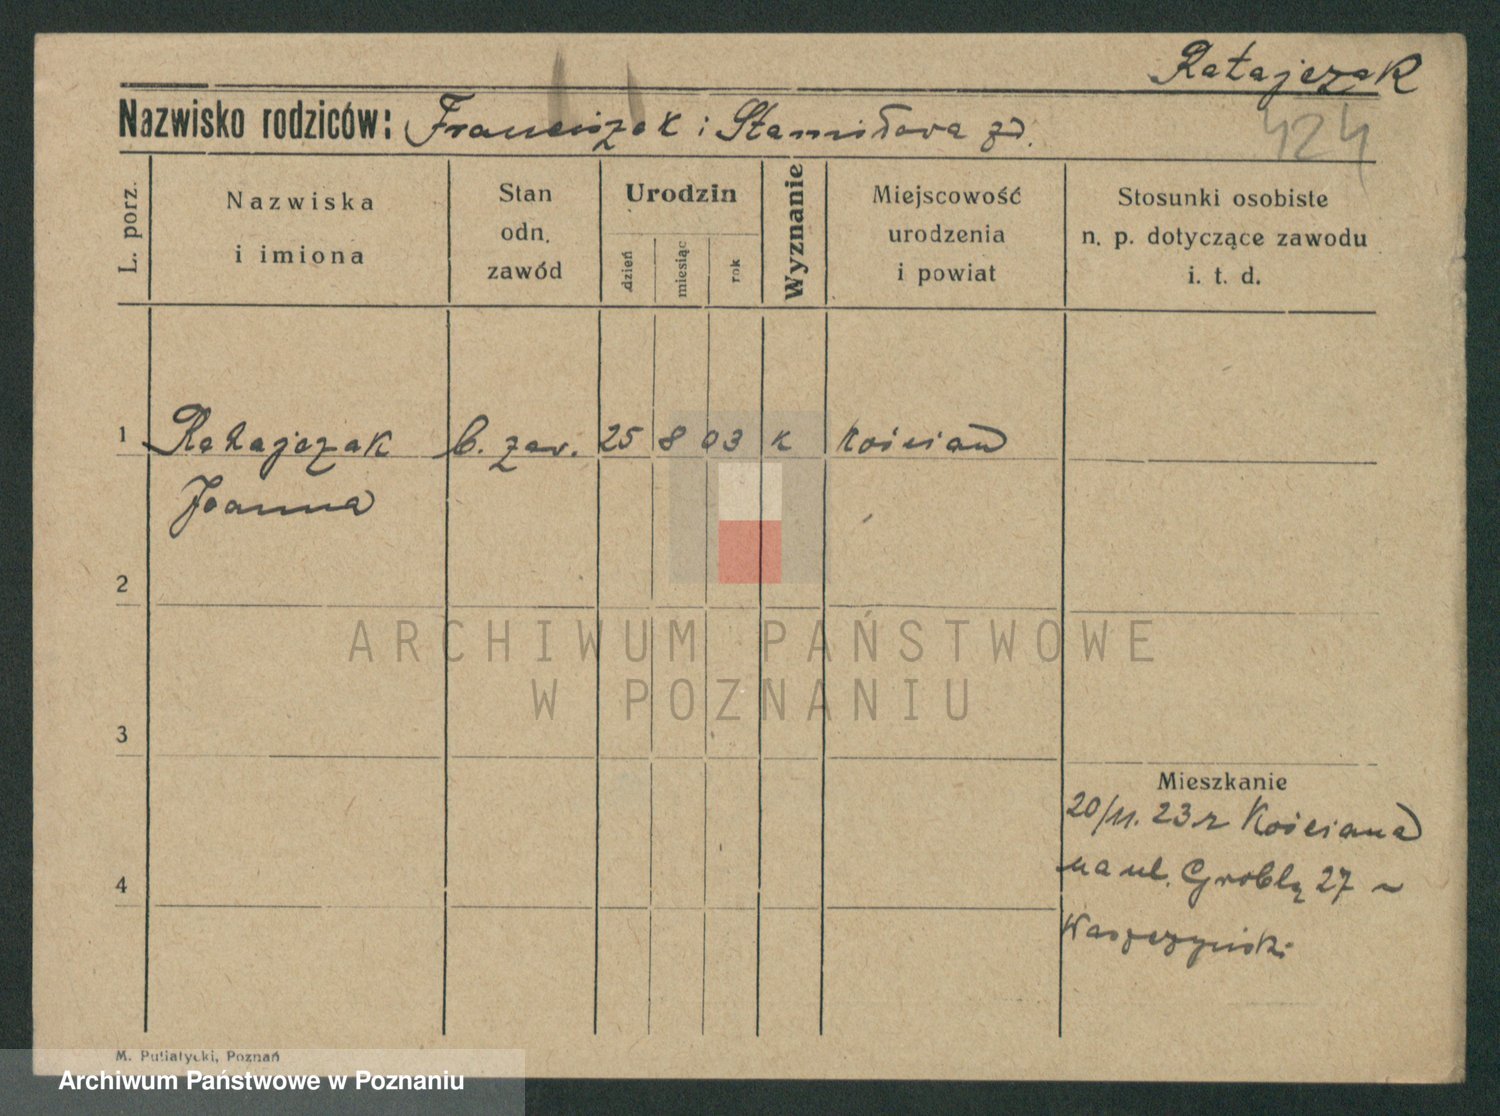 Ratajczak
Nazwisko rodziców: Franciszek i Stanisława zd.
424
L. porz.
Nazwiska
i imiona
Stan
odn.
zawód
Urodzin
dzień
miesiąc
rok
Wyznanie
Miejscowość
urodzenia
i powiat
Stosunki osobiste
n. p. dotyczące zawodu
i. t. d.
1 Ratajczak b. zaw. 25 8 03 k Kościan
Joanna
2
3
4
Mieszkanie
20/11. 23 r Kościana
na ul. Groblą 27 ~
Waszczyński
ARCHIWUM PAŃSTWOWE
W POZNANIU
M. Putiatycki, Poznań
Archiwum Państwowe w Poznaniu